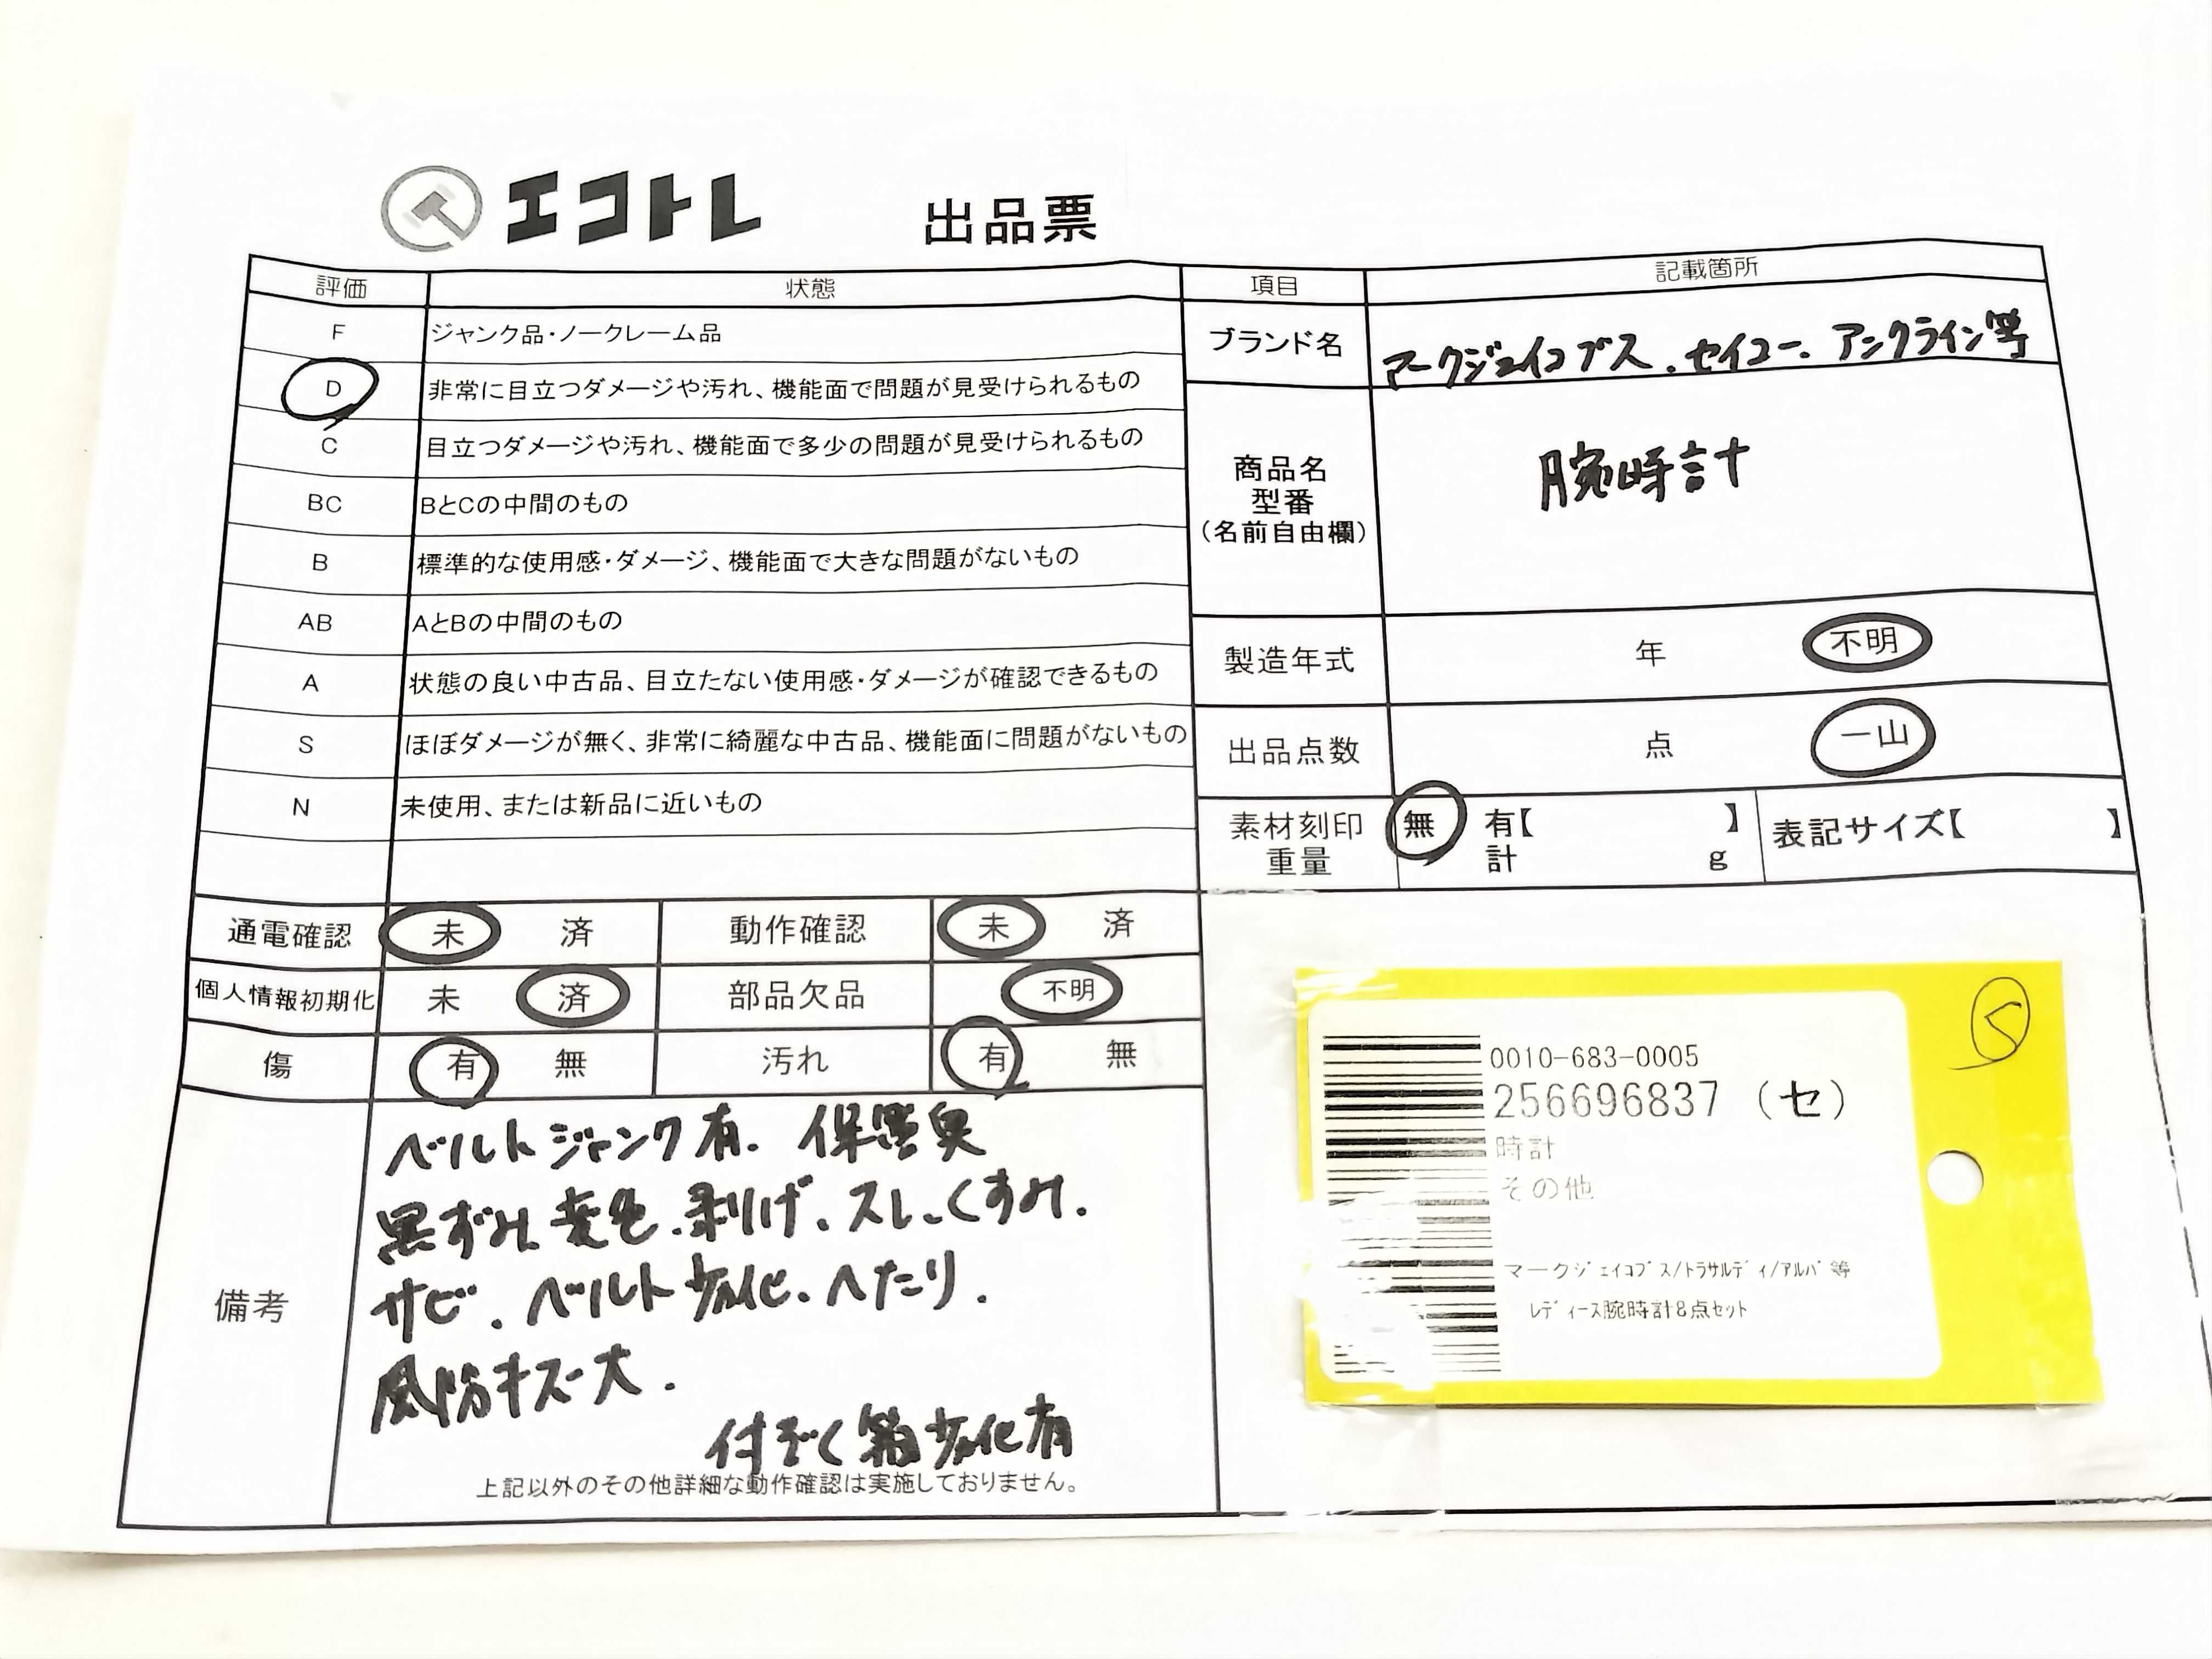 エコトレ 出品票
評価 状態
F ジャンク品・ノークレーム品
D 非常に目立つダメージや汚れ、機能面で問題が見受けられるもの
C 目立つダメージや汚れ、機能面で多少の問題が見受けられるもの
BC BとCの中間のもの
B 標準的な使用感・ダメージ、機能面で大きな問題がないもの
AB AとBの中間のもの
A 状態の良い中古品、目立たない使用感・ダメージが確認できるもの
S ほぼダメージが無く、非常に綺麗な中古品、機能面に問題がないもの
N 未使用、または新品に近いもの
通電確認 未 済 動作確認 未 済
個人情報初期化 未 済 部品欠品 不明
傷 有 無 汚れ 有 無
備考
ベルトジャンク有. 保証無
黒ずみ、変色、剥げ、スレ、くすみ.
サビ、ベルト劣化、へたり.
風防キズ大.
付ぞく箱劣化有
上記以外のその他詳細な動作確認は実施しておりません。
項目 記載箇所
ブランド名 マークジェイコブス、セイコー、アンクライン等
商品名
型番
(名前自由欄)
腕時計
製造年式 年 不明
出品点数 点 一山
素材刻印 無 有【 】 表記サイズ【 】
重量 計 g
0010-683-0005
256696837 (セ)
時計
その他
マークジェイコブス/トラサルディ/アルバ等
レディース腕時計8点セット